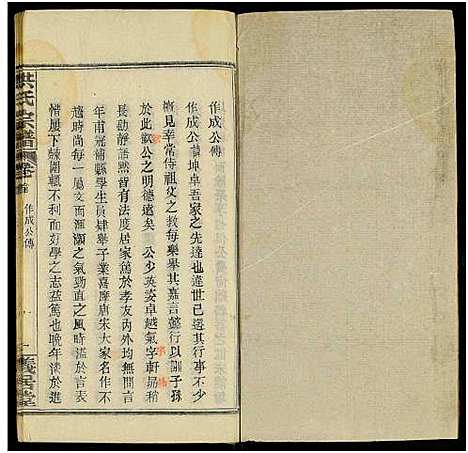 作成公傳
作成公諱坤阜吾家之先達也違世已遠其行事不少
概見幸常侍祖父之教每樂舉其嘉言懿行以訓子孫
於此歎公之明德遠矣 公少英姿卓越氣宇軒昂稍
長動靜語黙皆有法度居家篤於孝友內外無間言
年甫冠補縣學生員肄舉子業喜摩唐宋大家名作不
趨時尚每一文而渾灝之氣勁直之風時溢於言表
惜屢下棘闈輒不利而好學之志益篤也晩年淡於進
洪氏宗譜
卷首
作成公傳
一
義居堂